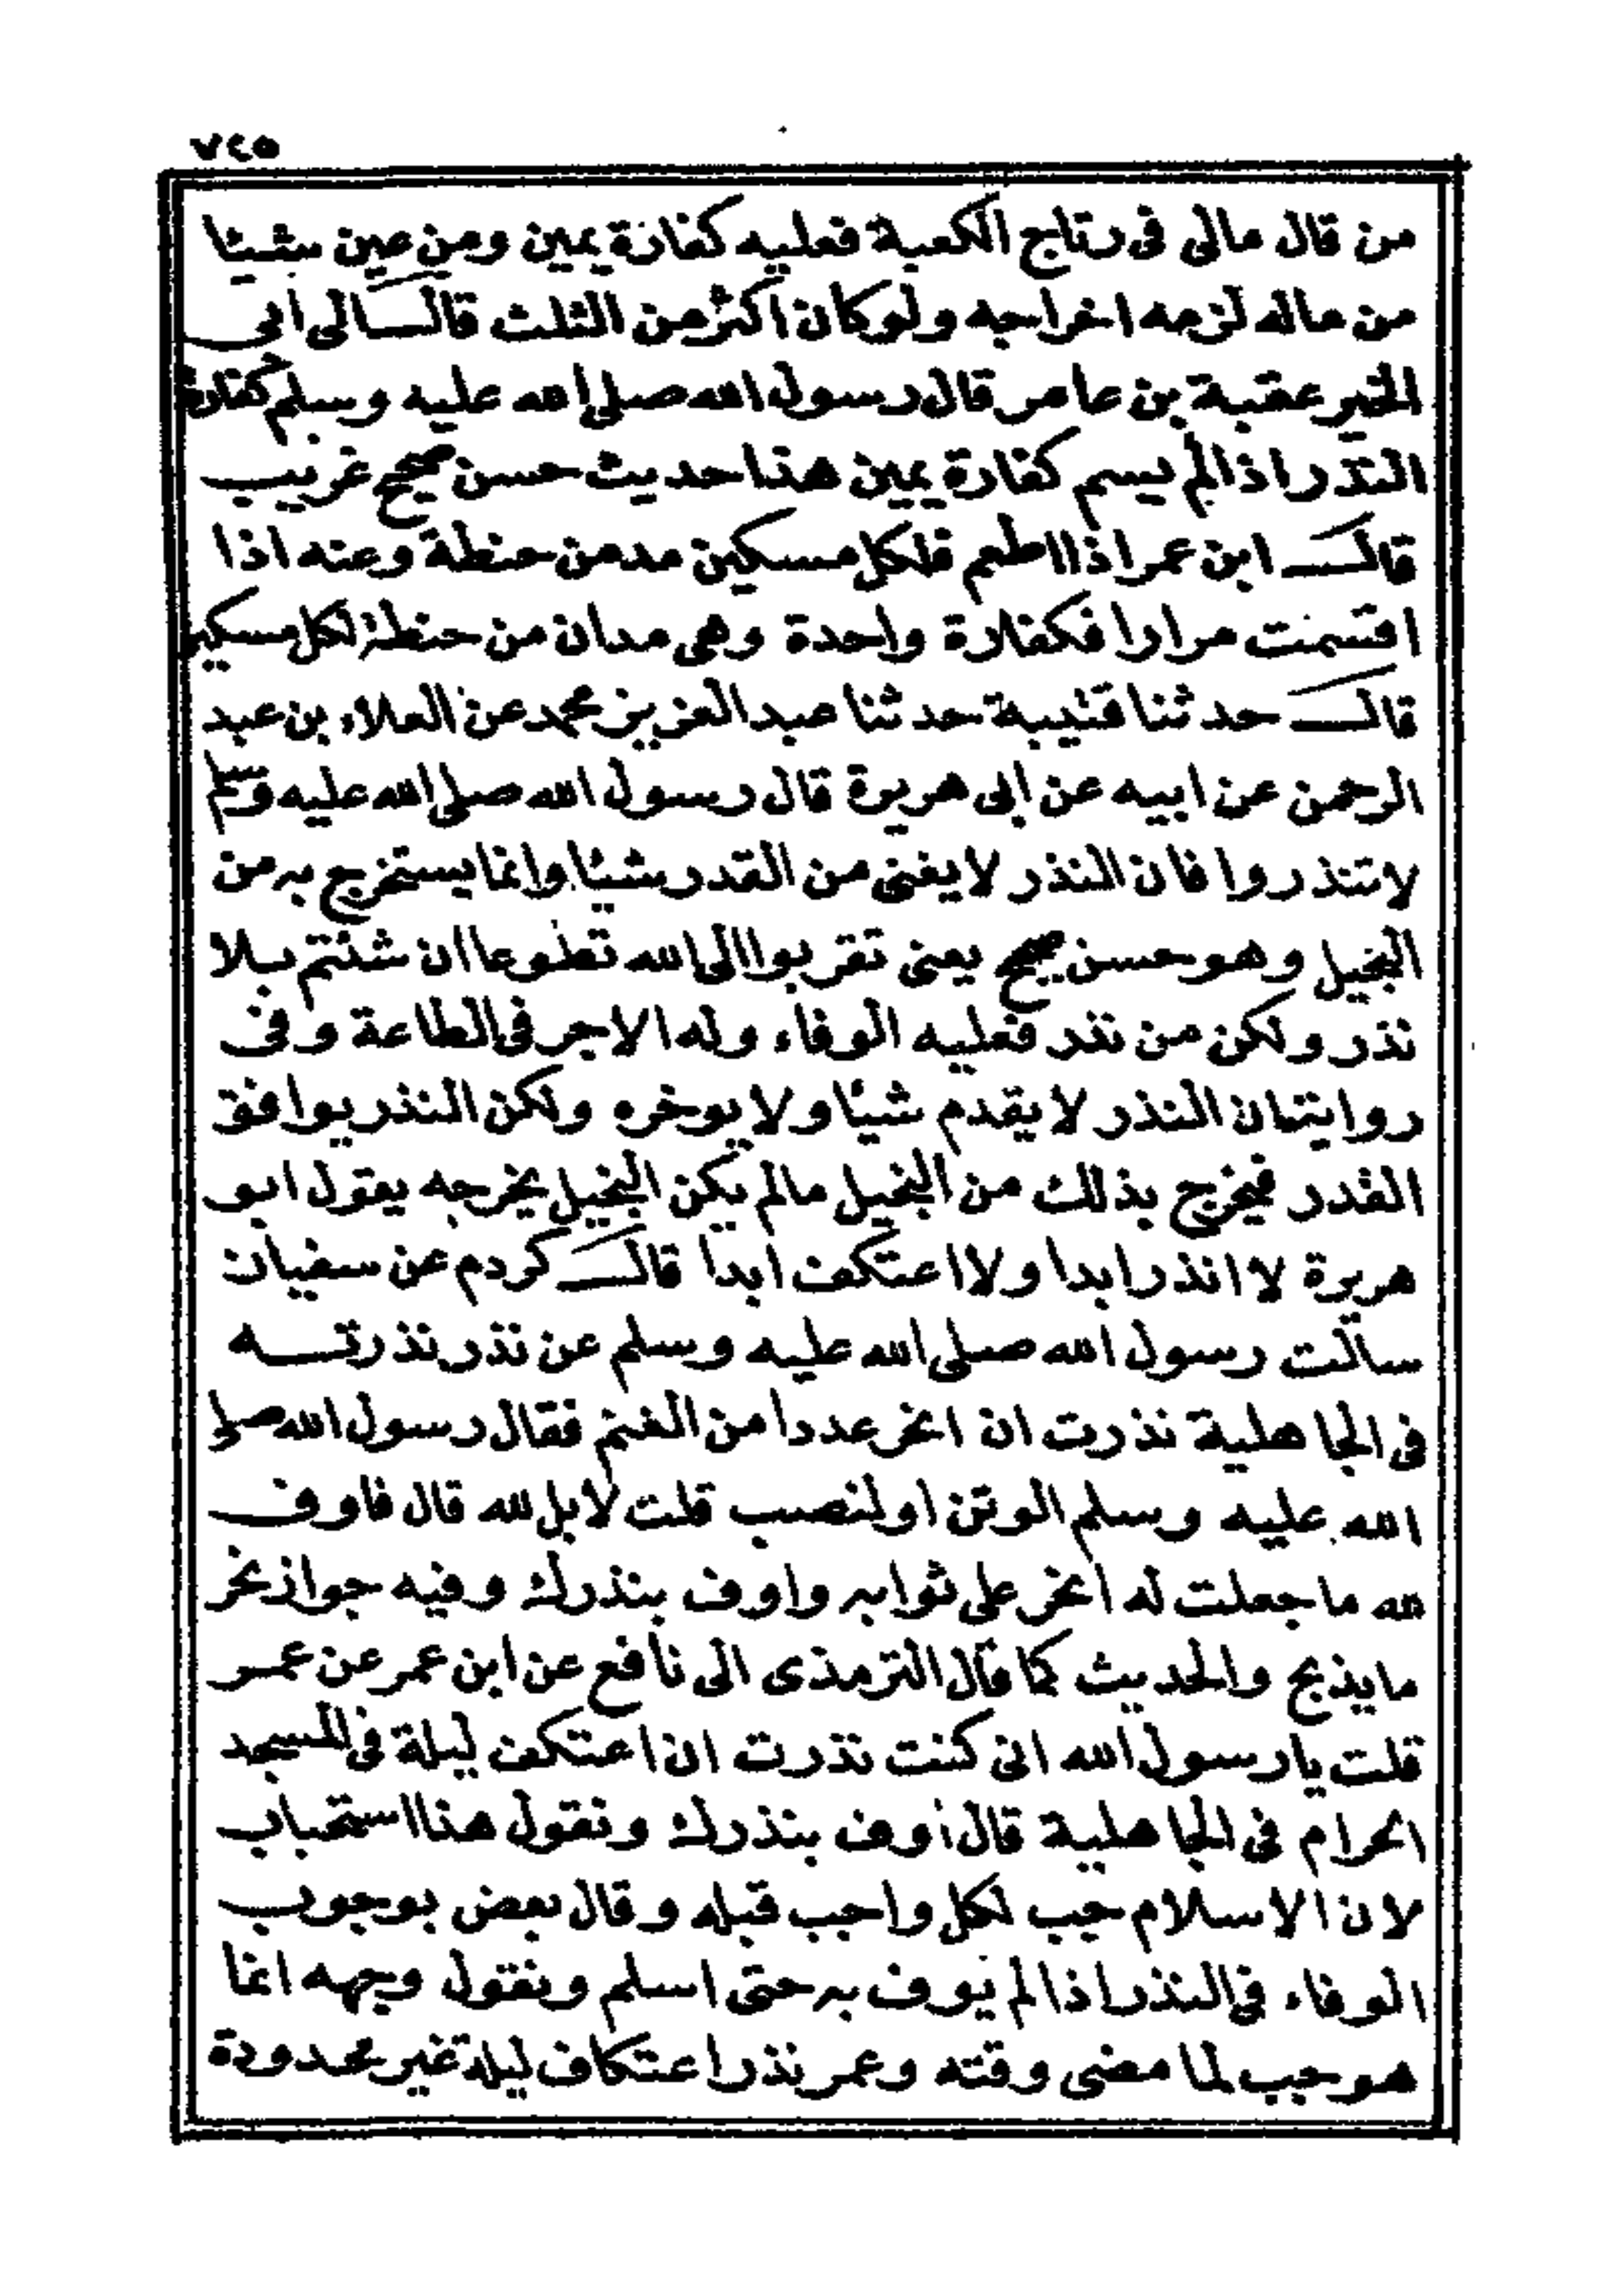 ٧٤٥
من قال مالى فى رتاج الكعبة فعليه كفارة يمين ومن عين شيئا
من ماله لزمه اخراجه ولو كان اكثر من الثلث قال الى ابى
الخير عقبة بن عامر قال رسول الله صلى الله عليه وسلم كفارة
النذر اذا لم يسم كفارة يمين هذا حديث حسن صحيح غريب
قال ابن عمر اذا اطعم فلكل مسكين مد من حنطة وعنه اذا
اقسمت مرارا فكفارة واحدة وهى مدان من حنطة لكل مسكين
قال حدثنا قتيبة حدثنا عبد العزيز محمد عن العلاء بن عبد
الرحمن عن ابيه عن ابى هريرة قال رسول الله صلى الله عليه وسلم
لا تنذروا فان النذر لا يغنى من القدر شيئا وانما يستخرج به من
البخيل وهو حسن صحيح يعنى تقربوا الى الله تطوعا ان شئتم بلا
نذر ولكن من نذر فعليه الوفاء وله الاجر فى الطاعة وفى
روايتان النذر لا يقدم شيئا ولا يوخره ولكن النذر يوافق
القدر فيخرج بذلك من البخيل ما لم يكن البخيل يخرجه يقول ابو
هريرة لا انذر ابدا ولا اعتكف ابدا قال كردم عن سفيان
سالت رسول الله صلى الله عليه وسلم عن نذر نذرته
فى الجاهلية نذرت ان انحر عددا من الغنم فقال رسول الله صلى
الله عليه وسلم الوثن او لنصب قلت لا بل لله قال فاوف
لله ما جعلت له انحر على ثوابه واوف بنذرك وفيه جواز نحر
ما يذبح والحديث كما قال الترمذى الى نافع عن ابن عمر عن عمر
قلت يا رسول الله انى كنت نذرت ان اعتكف ليلة فى المسجد
الحرام فى الجاهلية قال اوف بنذرك ونقول هذا استحباب
لان الاسلام جب لكل واجب قبله وقال بعض بوجوب
الوفاء فى النذر اذا لم يوف به حتى اسلم ونقول وجهه انما
هو جب لما مضى وقته وعمر نذر اعتكاف ليله غير محدودة